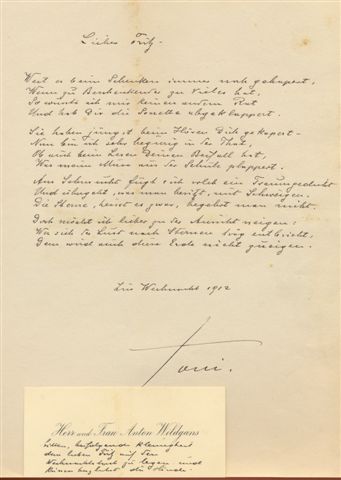 Lieber Fritz,
Weil es beim Schenken immer noch gehapert,
Wenn zu Beschenkender zu Vieles hat,
So wusste ich mir keinen andern Rat
Und hab Dir die Sonette abgeklappert.
Sie haben jüngst beim Hören Dich gekapert –
Nun bin ich sehr begierig in der That,
Ob auch beim Lesen Deinen Beifall hat,
Was man schon in der Schule plappert.
Am sich solch ein
Und man mit Schweigen.
Die Sterne, heisst es zwar, begehrt man nicht.
Doch möcht ich lieber zu der Ansicht neigen:
Wo sich die Lust nach Sternen
Dem wird auch diese Erde nicht zueigen.
Zur Weihnacht 1912
Toni.
Herr und Frau Anton Wildgans
bitten, beifolgende Kleinigkeit
dem lieben Fritz auf den
Weihnachtstisch zu legen und
küssen herzlichst die Hände.